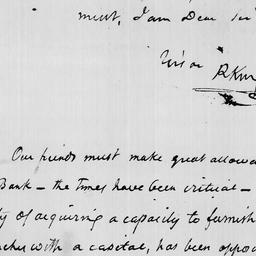 ment, I am Dear Sir
Our friends must make great allowa
Bank – the times have been critical –
ty of acquiring a capacity to furnish
with a capital, has been oppo